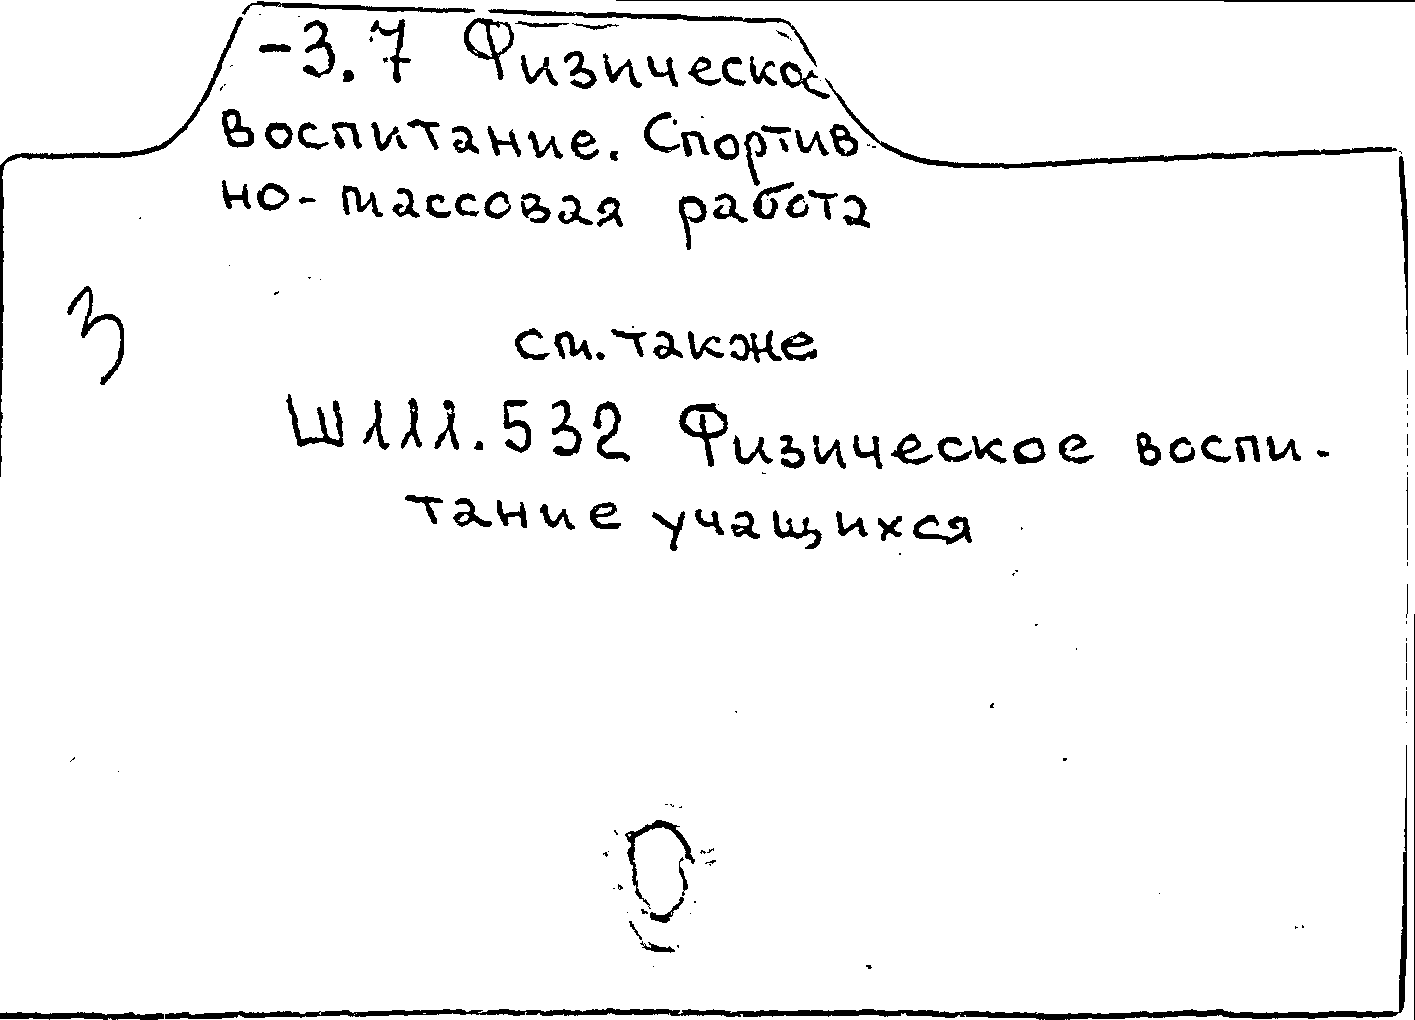 -3.7 Физическое
воспитание. Спортив
но-массовая работа
3
см. также
Ш111.532 Физическое воспи-
тание учащихся